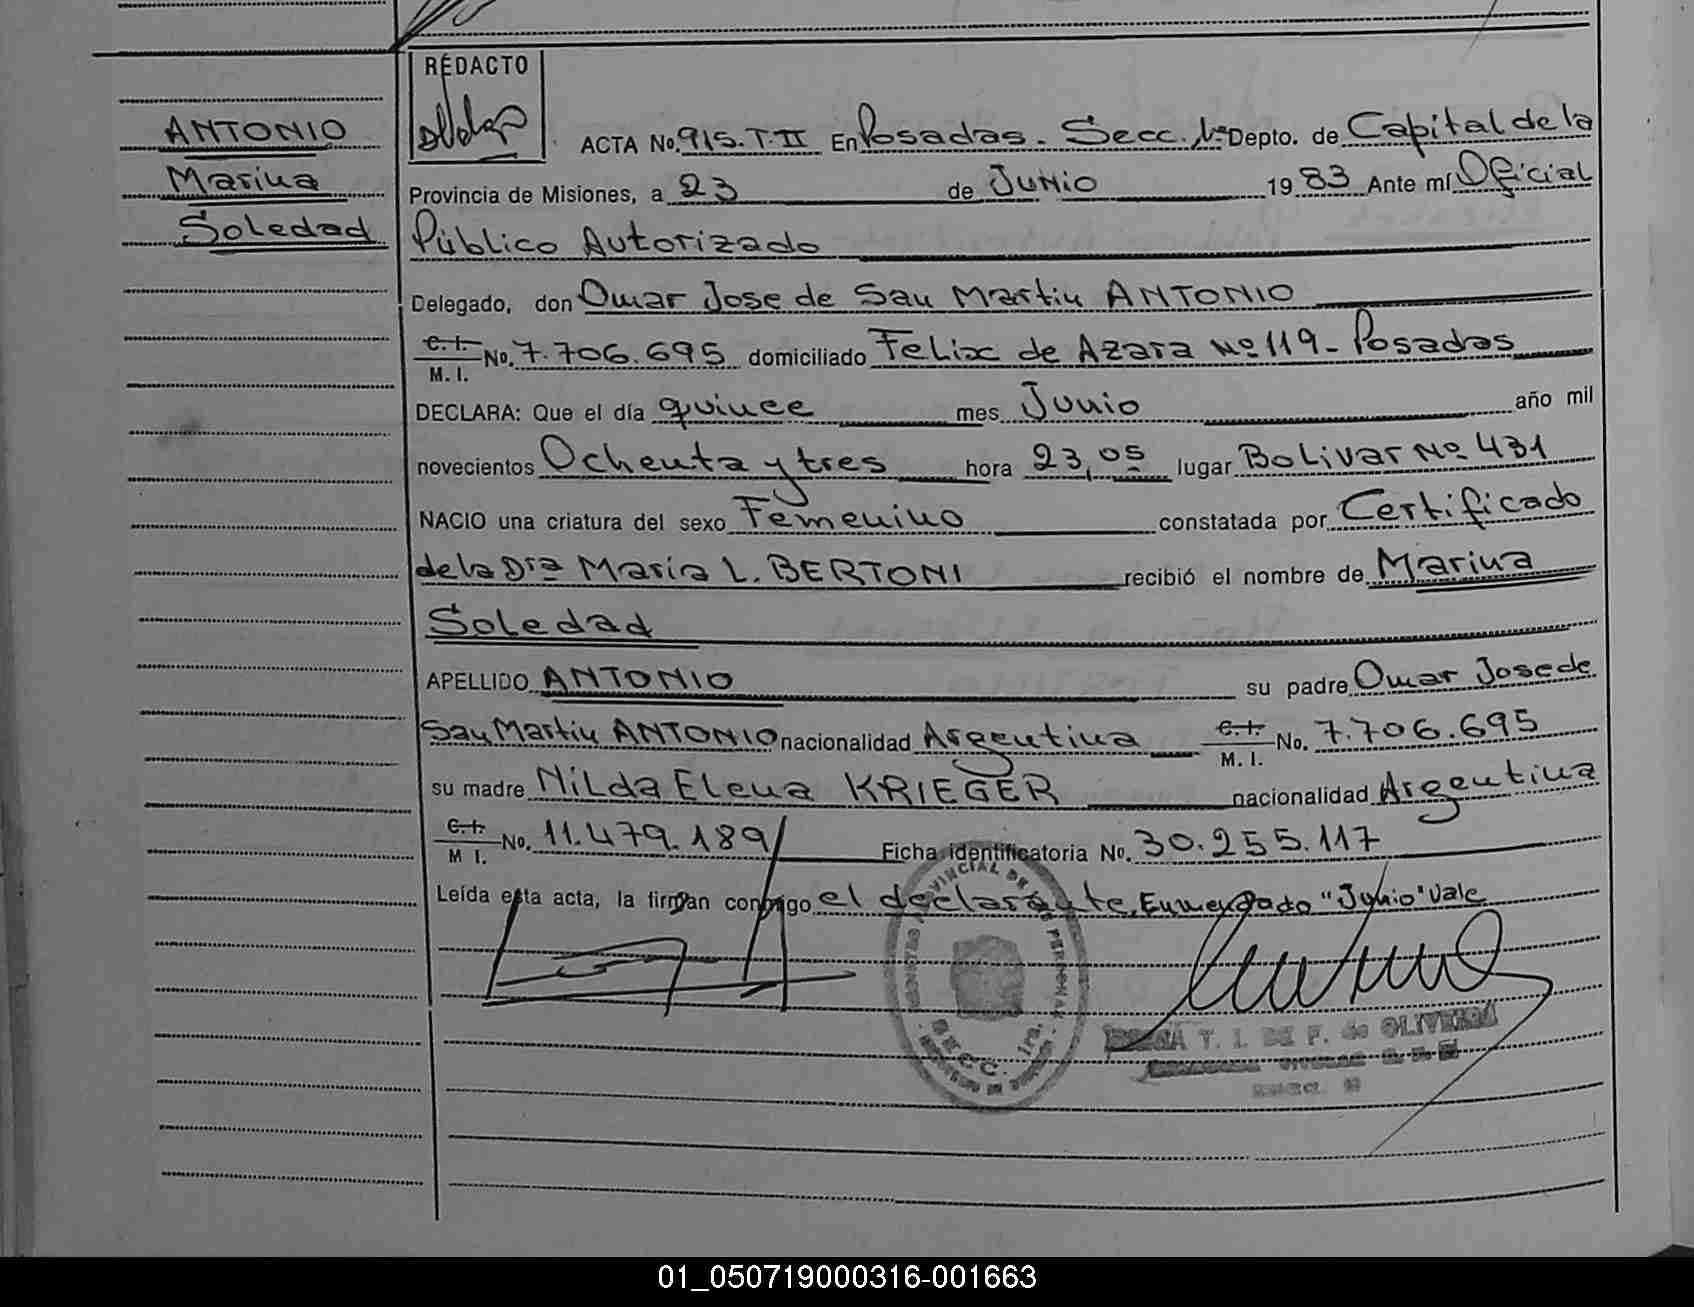 REDACTO
ANTONIO
Marina
Soledad
ACTA No. 915. T. II En Posadas. Secc. 1ª Depto. de Capital de la
Provincia de Misiones, a 23 de Junio 1983 Ante mí Oficial
Público Autorizado
Delegado, don Omar Jose de San Martin ANTONIO
C. I.
M. I. No. 7.706.695 domiciliado Felix de Azara Nº 119 - Posadas
DECLARA: Que el día quince mes Junio año mil
novecientos Ochenta y tres hora 23,05 lugar Bolivar Nº 431
NACIO una criatura del sexo Femenino constatada por Certificado
de la Dra Maria L. BERTONI recibió el nombre de Marina
Soledad
APELLIDO ANTONIO su padre Omar Jose de
San Martin ANTONIO nacionalidad Argentina C. I. No. 7.706.695
M. I.
su madre Nilda Elena KRIEGER nacionalidad Argentina
C. I.
M I. No. 11.479.189 Ficha identificatoria No. 30.255.117
Leída esta acta, la firman conmigo el declarante, Enmendado "Junio" Vale
SECC. 1ra.
T. I. DE F. de OLIVEIRA
01_050719000316-001663